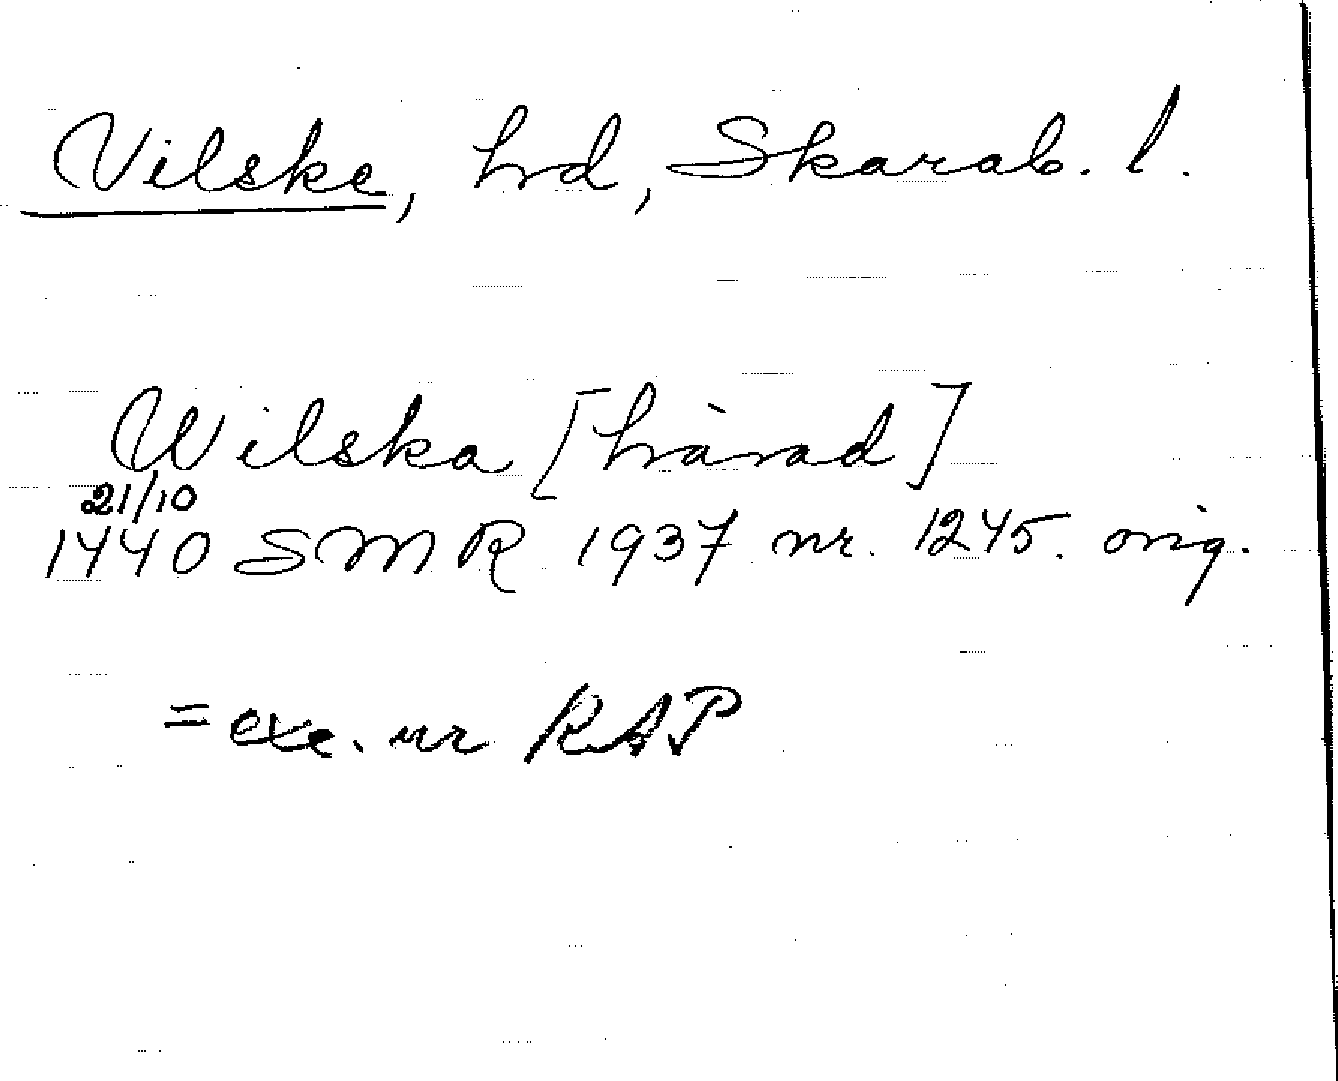 Vilske, hd, Skarab. l.
Wilska [hàrad]
21/10
1440 SMR 1937 nr. 1245. orig.
= exc. ur RAP